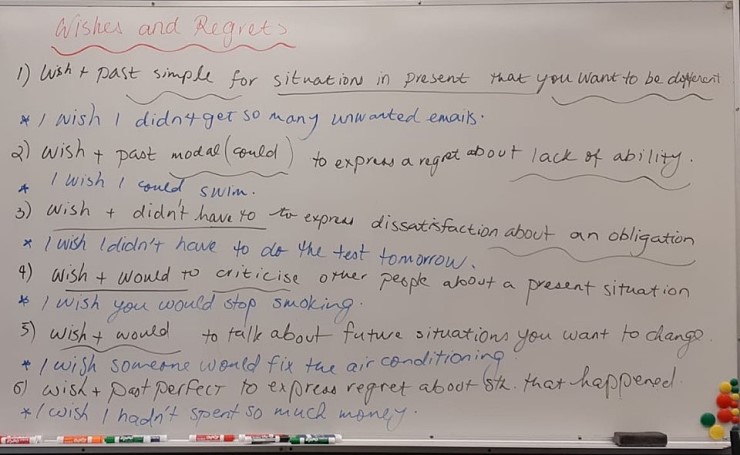 Wishes and Regrets
1) Wish + past simple for situations in present that you want to be different
* I wish I didn't get so many unwanted emails.
2) wish + past modal (could) to express a regret about lack of ability.
* I wish I could swim.
3) wish + didn't have to to express dissatisfaction about an obligation
* I wish I didn't have to do the test tomorrow.
4) wish + would to criticise other people about a present situation
* I wish you would stop smoking.
5) wish + would to talk about future situations you want to change.
* I wish someone would fix the air conditioning
6) wish + past perfect to express regret about sth. that happened.
* I wish I hadn't spent so much money.